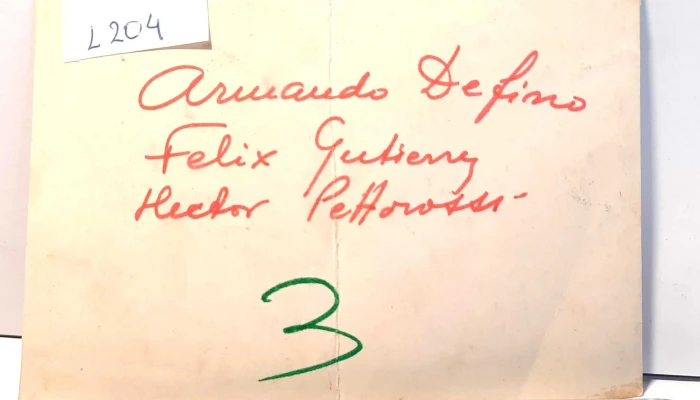 L 204
Armando Defino
Felix Gutierrez
Hector Pettorossi
3